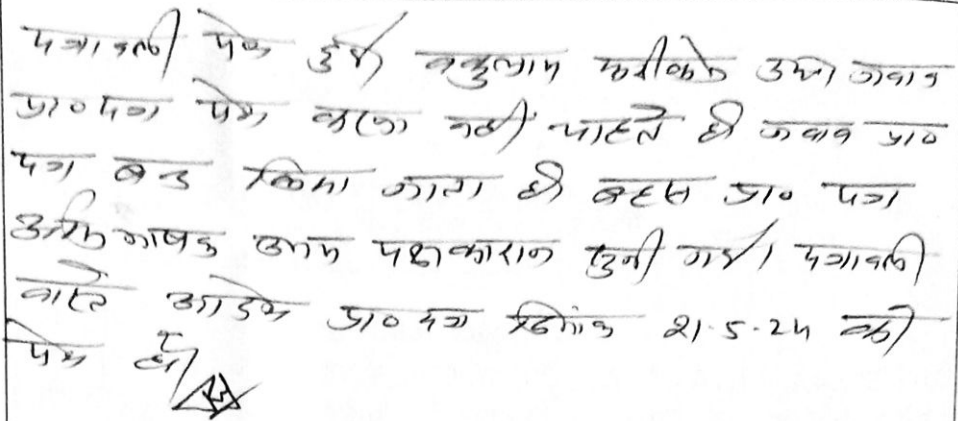 पत्रावली पेश हुई वकुलाय फरीकेन उप० जवाब
प्रा० पत्र पेश करना नहीं चाहते है जवाब प्रा०
पत्र बन्द किया जाता है बहस प्रा० पत्र
अभिभाषक उभय पक्षकारान सुनी गई। पत्रावली
वास्ते आदेश प्रा० पत्र दिनांक 21.5.24 को
पेश हो।